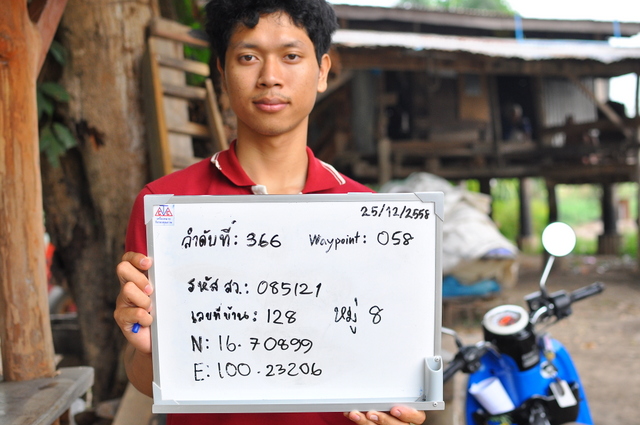 25/12/2558
ลำดับที่: 366 Waypoint: 058
รหัส สว.: 085121
เลขที่บ้าน: 128 หมู่ 8
N: 16.70899
E: 100.23206